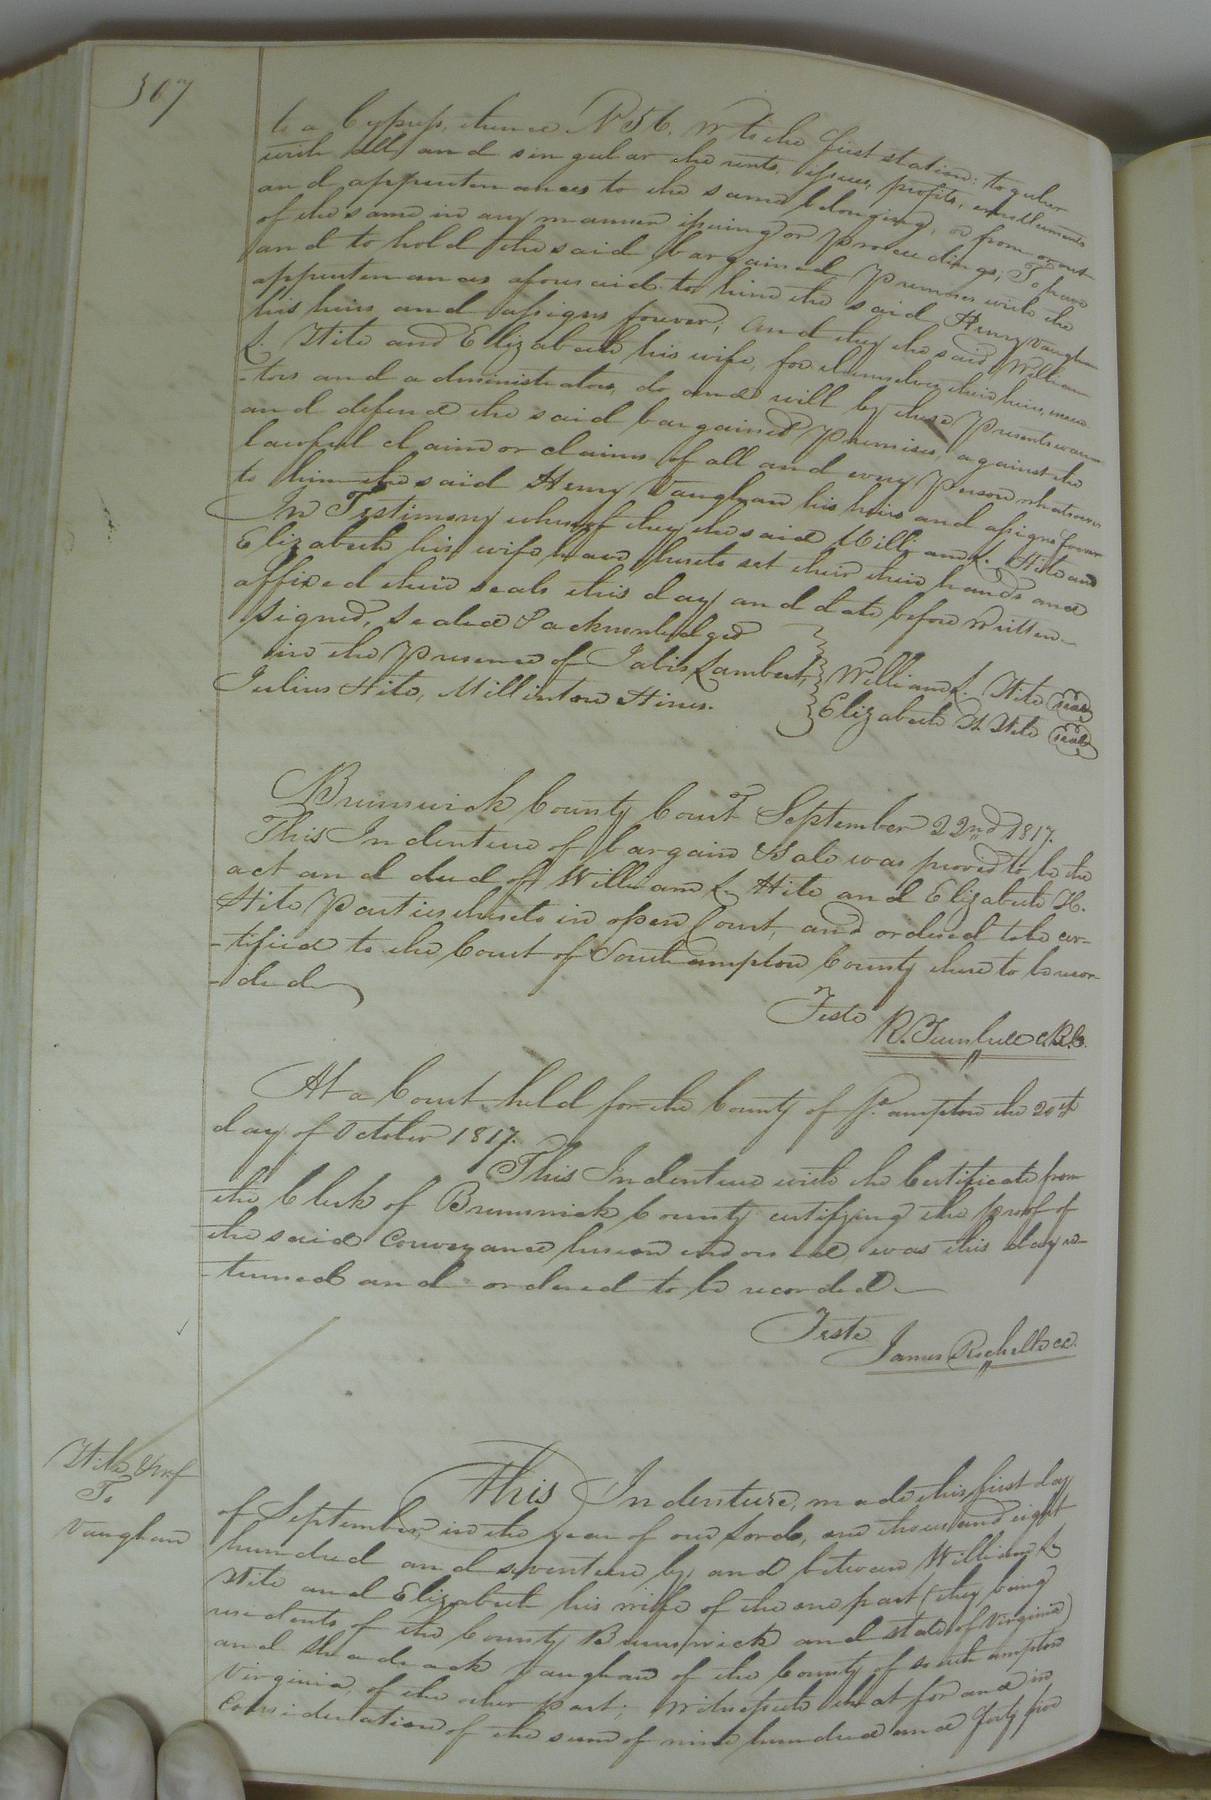 367
to a Cypress, thence N 56. W to the first station; together
with all and singular the rents, issues, profits, emoluments
and appurtenances to the same belonging, or from or out
of the same in any manner issuing or proceedings; To have
and to hold the said bargained premises with the
appurtenances aforesaid to him the said Henry Vaughan
his heirs and assigns forever; and they the said William
L. Hite and Elizabeth his wife, for themselves their heirs, execu
-tors and administrators, do and will by these presents warr
and defend the said bargained premises, against the
lawful claim or claims of all and every person whatsoever
to him the said Henry Vaughan his heirs and assigns forever
In Testimony whereof they the said William L. Hite and
Elizabeth his wife have hereto set their their hands and
affixed their seals this day and date before written
Signed, Sealed & acknowledged
in the presence of Jabis Lambert,
Julius Hite, Millinton Hines.
William L. Hite (seal)
Elizabeth H. Hite (seal)
Brunswick County Court September 22nd 1817.
This Indenture of bargain & Sale was proved to be the
act and deed of William L. Hite and Elizabeth H.
Hite parties thereto in open Court, and ordered to be cer-
-tified to the Court of Southampton County there to be recor-
-ded
Teste
R. Turnbull C.B.C.
At a Court held for the County of So. ampton the 20th
day of October 1817.
This Indenture with the Certificate from
the Clerk of Brunswick County certifying the proof of
the said Conveyance hereon endorsed, was this day re-
-turned and ordered to be recorded
Teste
James Rochelle cc.
Hite & wf
To
Vaughan
This Indenture, made this first day
of September, in the year of our Lord, one thousand eight
hundred and seventeen by and between William L
Hite and Elizabeth his wife of the one part (they being
residents of the County Brunswick and state of Virginia)
and Shadrack Vaughan of the County of Southampton
Virginia, of the other part; Witnesseth that for and in
Consideration of the sum of nine hundred and forty five